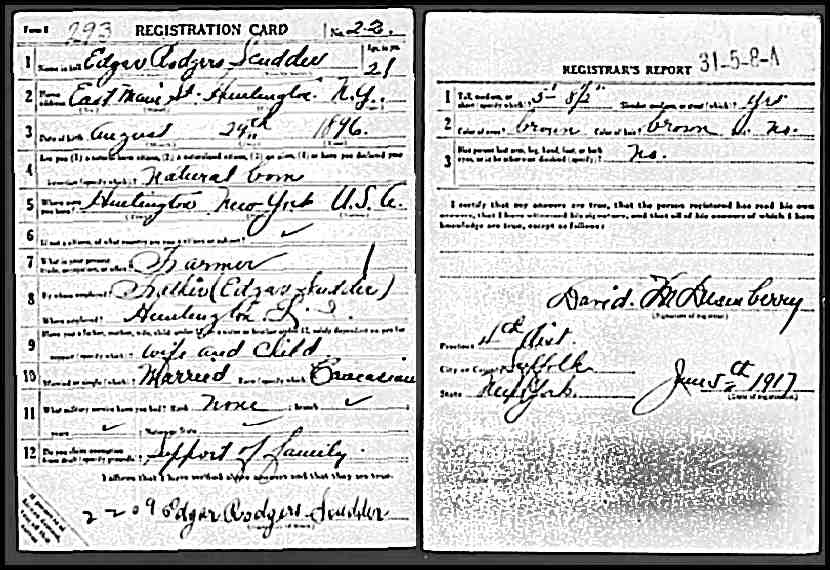 Form 1 293 REGISTRATION CARD No. 22.
1 Name in full Edgar Rodgers Scudder Age, in yrs. 21
2 Home address East Main St. Huntington N.Y.
3 Date of birth August 24th 1896.
Are you (1) a natural-born citizen, (2) a naturalized citizen, (3) an alien, (4) or have you declared your
4 intention (specify which)? Natural born
5 Where were you born? Huntington New York U.S.A.
6 If not a citizen, of what country are you a citizen or subject? ✓
7 What is your present trade, occupation, or office? Farmer 1
8 By whom employed? Father (Edgar Scudder)
Where employed? Huntington L. I.
9 Have you a father, mother, wife, child under 12, or a sister or brother under 12, solely dependent on you for
support (specify which)? Wife and Child
10 Married or single (which)? Married Race (specify which)? Caucasian
11 What military service have you had? Rank None ; branch ✓
years ✓ ; Nation or State ✓
12 Do you claim exemption from draft (specify grounds)? Support of family
I affirm that I have verified above answers and that they are true.
2209 Edgar Rodgers Scudder
31-5-8-A
REGISTRAR'S REPORT
1 Tall, medium, or short (specify which)? 5' 8½" Slender, medium, or stout (which)? yes
2 Color of eyes? brown Color of hair? brown Bald? no.
3 Has person lost arm, leg, hand, foot, or both eyes, or is he otherwise disabled (specify)? No.
I certify that my answers are true, that the person registered has read his own
answers, that I have witnessed his signature, and that all of his answers of which I have
knowledge are true, except as follows:
David
(Signature of registrar)
Precinct 4th Dist.
City or County Suffolk
State New York. June 5th 1917
(Date of registration)